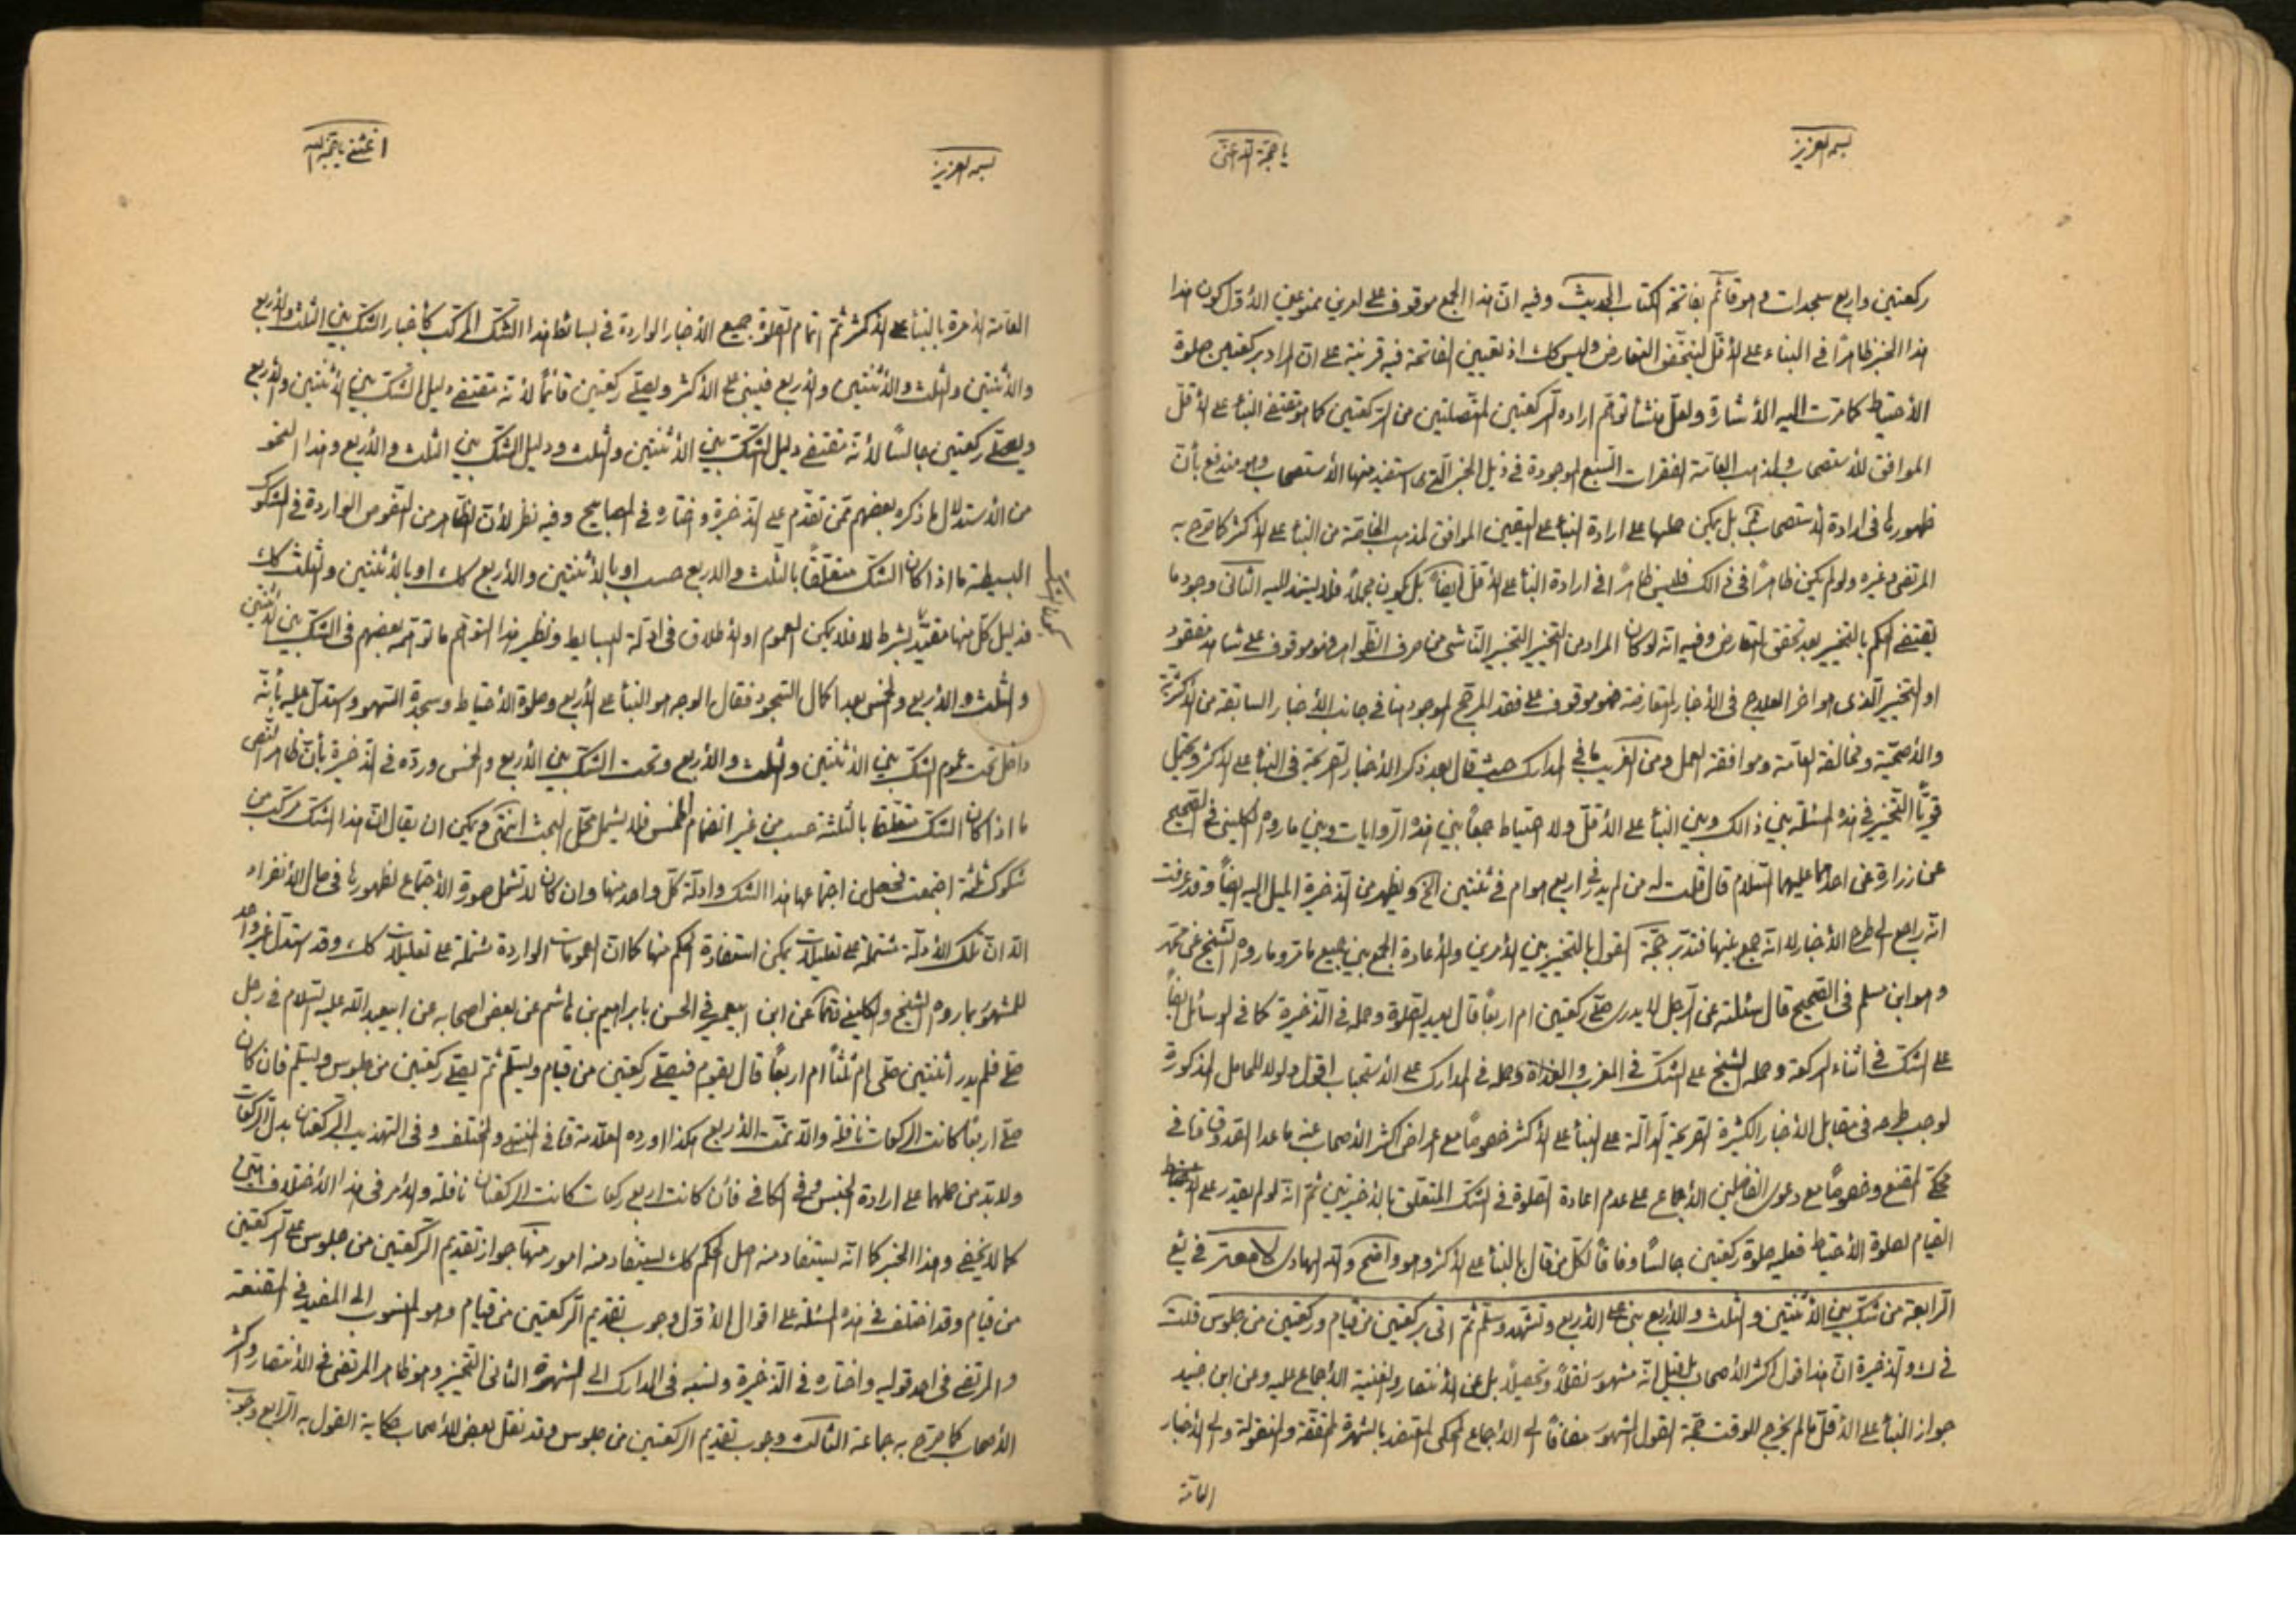 بسمه العزيز
يا حجة الله اغثنى
ركعتين واربع سجدات وهو قائم بفاتحة الكتاب الحديث وفيه ان هذا الجمع موقوف على امرين ممنوعين الأول كون هذا
هذا الخبر ظاهرًا فى البناء على الأقل ليتحقق التعارض وليس كك اذ تعيين الفاتحة فيه قرينة على ان المراد بركعتين صلوة
الأحتياط كما مرت اليه الأشارة ولعل منشأ توهم اراده الركعتين المتصلتين من الركعتين كما هو مقتضى البنأ على الأقل
الموافق للأستصحاب ولمذهب العامة الفقرات السبع الموجودة فى ذيل الخبر التى استفيد منها الأستصحاب وهو مندفع بأن
ظهورها فى ارادة الأستصحاب بل يمكن حملها على ارادة البنأ على اليقين الموافق لمذهب الخاصة من البنأ على الأكثر كما صرح به
المرتضى وغيره ولو لم يكن ظاهرًا فى ذالك فليس ظاهرًا فى ارادة البنأ على الأقل ايضًا بل يكون مجملًا فلا يستند اليه الثانى وجود ما
يقتضى الحكم بالتخيير بعد تحقق التعارض وفيه انه لو كان المراد من التخيير التخيير الناشى من صرف الظواهر فهو موقوف على شاهد مفقود
او التخيير الذى هو اخر العلاج فى الأخبار المتعارضة فهو موقوف على فقد المرجح الموجود هنا فى جانب الأخبار السابقة من الأكثرية
والأصحية ومخالفة العامة وموافقة العمل ومن الغريب ما فى المدارك حيث قال بعد ذكر الأخبار الصريحة فى البنأ على الأكثر ويحتمل
قويًّا التخيير فى هذه المسئلة بين ذالك وبين البنأ على الأقل ولا احتياط جمعًا بين هذه الروايات وبين ما رواه الكلينى فى الصحيح
عن زرارة عن احدهما عليهما السلام قال قلت له من لم يدر فى اربع هو ام فى ثنتين الخ ويظهر من الذخيرة الميل اليه ايضًا وقد عرفت
انه راجع الى طرح الأخبار لا انه جمع بينها فتدبر حجة القول بالتخيير بين الأمرين والأعادة الجمع بين جميع ما مر وما رواه الشيخ عن محمد
وهو ابن مسلم فى الصحيح قال سئلته عن الرجل لا يدرى صلى ركعتين ام اربعًا قال يعيد الصلوة وحمله فى الذخيرة كما فى الوسائل ايضًا
على الشك فى اثناء الركعة وحمله الشيخ على الشك فى المغرب والغداة وحمله فى المدارك على الأستحباب اقول ولولا المحامل المذكورة
لوجب طرحه فى مقابل الأخبار الكثيرة الصريحة الدالة على البنأ على الأكثر خصوصًا مع اعراض اكثر الأصحاب عنه ما عدا الصدوق فى
محكى المقنع وخصوصًا مع دعوى الفاضلين الأجماع على عدم اعادة الصلوة فى الشك المتعلق بالأخيرتين ثم انه لو لم يقدر على
القيام لصلوة الأحتياط فعليه صلوة ركعتين جالسًا وفاقًا لكل من قال بالبنأ على الأكثر وهو واضح والله الهادى
الرابعة من شك بين الأثنتين والثلث والأربع بنى على الأربع وتشهد وسلم ثم اتى بركعتين من قيام وركعتين من جلوس قلت
فى ك والذخيرة ان هذا قول اكثر الأصحاب بل قيل انه مشهور نقلًا وتحصيلًا بل عن الأنتصار والغنية الأجماع عليه وعن ابن جنيد
جواز البنأ على الأقل ما لم يخرج الوقت حجة القول المشهور مضافًا الى الأجماع المحكى المعتضد بالشهرة المحققة والمنقولة والى الأخبار
العامة
بسمه العزيز
اغثنى يا حجة الله
العامة الأمرة بالبنأ على الأكثر ثم اتمام الصلوة جميع الأخبار الواردة فى بسائط هذا الشك المركب كأخبار الشك بين الثلث والأربع
والأثنتين والثلث والأثنتين والأربع فيبنى على الأكثر ويصلى ركعتين قائمًا لأنه مقتضى دليل الشك بين الأثنتين والأربع
ويصلى ركعتين جالسًا لأنه مقتضى دليل الشك بين الأثنتين والثلث ودليل الشك بين الثلث والأربع وهذا النحو
من الأستدلال ما ذكره بعضهم ممن تقدم على الذخيرة واختاره فى المصابيح وفيه نظر لأن الظاهر من النصوص الواردة فى الشكوك
البسيطة ما اذا كان الشك متعلقًا بالثلث والاربع حسب او بالأثنتين والأربع كك او بالأثنتين والثلث كك
فدليل كل منها مقيد بشرط لا فلا يمكن العموم او الأطلاق فى ادلة البسايط ونظير هذا التوهم ما توهمه بعضهم فى الشك بين الأثنتين
والثلث والأربع والخمس بعد اكمال السجود فقال الوجه هو البنأ على الأربع وصلوة الأحتياط وسجدة السهو واستدل عليه بأنه
داخل تحت عموم الشك بين الأثنتين والثلث والأربع وتحت الشك بين الأربع والخمس ورده فى الذخيرة بأن ظاهر النص
ما اذا كان الشك متعلقا بالثلثة حسب من غير انضمام الخمس فلا يشمل محل البحث انتهى ويمكن ان يقال ان هذا الشك مركب من
شكوك ثلثة اجتمعت فحصل من اجتماعها هذا الشك وادلة كل واحد منها وان كان لا تشمل صورة الأجتماع لظهورها فى حال الأنفراد
الا ان تلك الأدلة مشتملة على تعليلات يمكن استفادة الحكم منها كما ان العمومات الواردة مشتملة على تعليلات كك وقد استدل غير واحد
للمشهور بما رواه الشيخ والكلينى عن ابن ابيعمير فى الحسن بابراهيم بن هاشم عن بعض اصحابه عن ابيعبدالله عليه السلام فى رجل
صلى فلم يدر أثنتين صلى ام ثلثًا ام اربعًا قال يقوم فيصلى ركعتين من قيام ويسلم ثم يصلى ركعتين من جلوس ويسلم فان كان
صلى اربعًا كانت الركعات نافلة والا تمت الأربع هكذا اورده العلامة فى المنتهى والمختلف وفى التهذيب الركعتان بدل الركعات
ولا بد من حملها على ارادة الجنس وفى الكافى فأن كانت اربع ركعات كانت الركعتان نافلة والأمر فى هذا الأختلاف هين
كما لا يخفى وهذا الخبر كما انه يستفاد منه اصل الحكم كك يستفاد منه امور منها جواز تقديم الركعتين من جلوس على الركعتين
من قيام وقد اختلف فى هذه المسئلة على اقوال الأول وجوب تقديم الركعتين من قيام وهو المنسوب الى المفيد فى المقنعة
والمرتضى فى احد قوليه واختاره فى الذخيرة ونسبه فى المدارك الى الشهرة الثانى التخيير وهو ظاهر المرتضى فى الأنتصار واكثر
الأصحاب كما صرح به جماعة الثالث وجوب تقديم الركعتين من جلوس وقد نقل بعض الأصحاب حكاية القول به الرابع وجوب